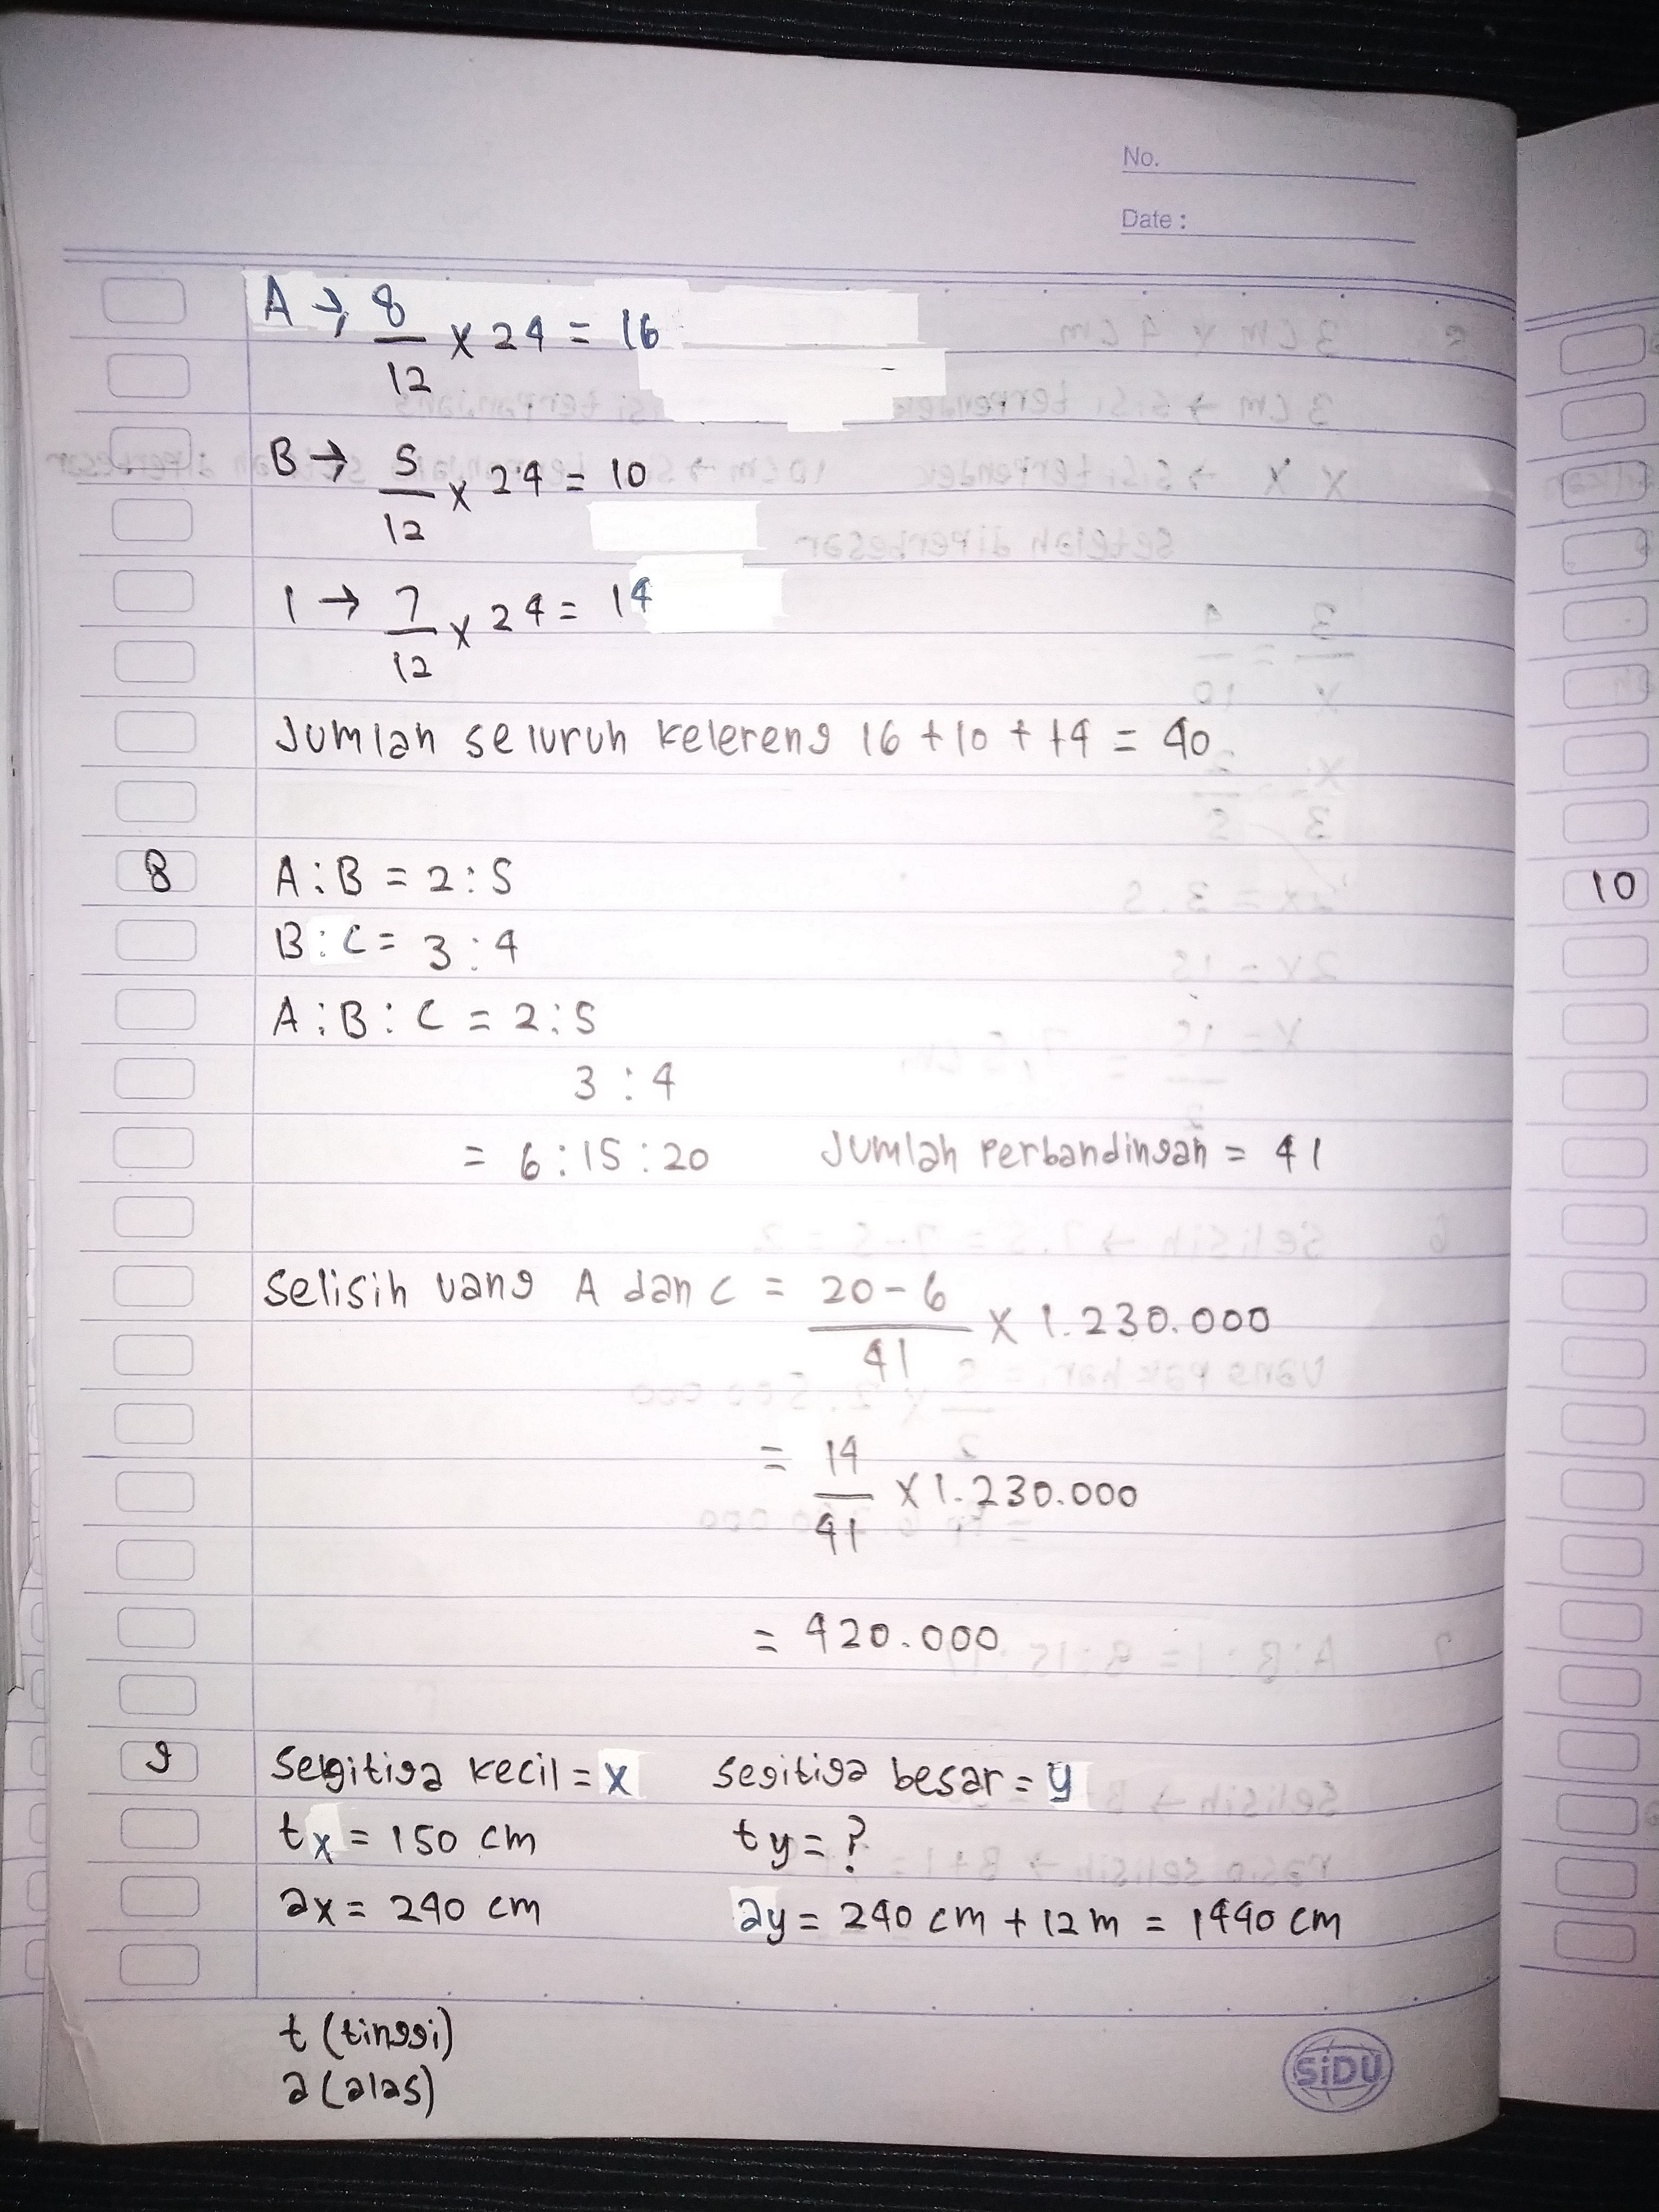 No.
Date :
A → 8/12 x 24 = 16
B → 5/12 x 24 = 10
1 → 7/12 x 24 = 14
Jumlah seluruh kelereng 16 + 10 + 14 = 40
8 A : B = 2 : 5
B : C = 3 : 4
A : B : C = 2 : 5
3 : 4
= 6 : 15 : 20 Jumlah Perbandingan = 41
Selisih uang A dan C = 20 - 6/41 x 1.230.000
= 14/41 x 1.230.000
= 420.000
9 Segitiga kecil = x segitiga besar = y
tx = 150 cm ty = ?
ax = 240 cm ay = 240 cm + 12 m = 1440 cm
t (tinggi)
a (alas)
SiDU
10